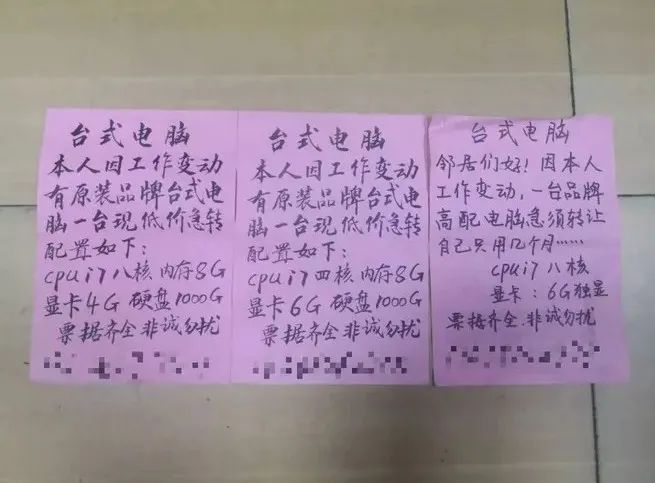 台式电脑
本人因工作变动
有原装品牌台式电
脑一台现低价急转
配置如下：
cpu i7 八核 内存8G
显卡4G 硬盘1000G
票据齐全 非诚勿扰
台式电脑
本人因工作变动
有原装品牌台式电
脑一台现低价急转
配置如下：
cpu i7 四核 内存8G
显卡6G 硬盘1000G
票据齐全 非诚勿扰
台式电脑
邻居们好！因本人
工作变动，一台品牌
高配电脑急须转让
自己只用几个月……
cpu i7 八核
显卡：6G独显
票据齐全.非诚勿扰